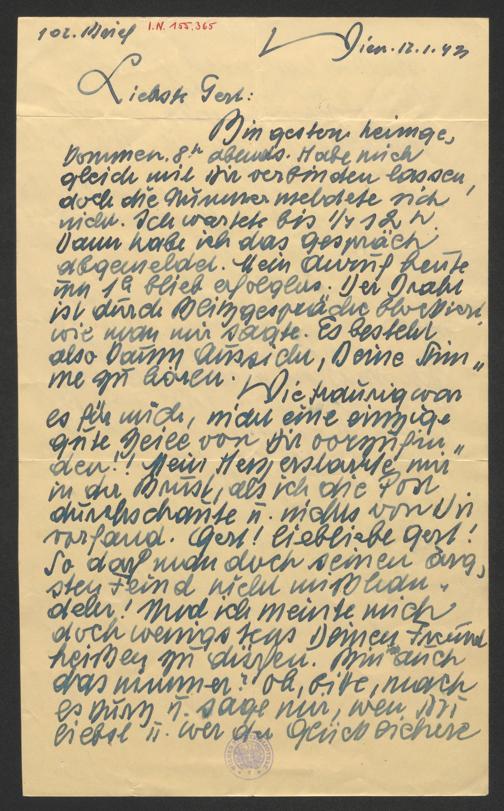 102. Brief I.N. 155.365 Wien. 12.1.42
Liebste Gert:
Bin gestern heimge-
kommen. 8h abends. Habe mich
gleich mit Dir verbinden lassen,
doch die Nummer meldete sich
nicht. Ich wartete bis 1/4 12 h.
Dann habe ich das Gespräch
abgemeldet. Mein Anruf heute
um 19 blieb erfolglos. Der Draht
ist durch Blitzgespräche blockiert,
wie man mir sagte. Es besteht
also kaum Aussicht, Deine Stim-
me zu hören.
Wie traurig war
es für mich, nicht eine einzige
gute Zeile von Dir vorzufin-
den!! Mein Herz erstarrte mir
in der Brust, als ich die Post
durchschaute u. nichts von Dir
vorfand. Gert! liebliebe Gert!
So darf man doch seinen ärg-
sten Feind nicht mißhan-
deln! Und ich meinte mich
doch wenigstens Deinen Freund
heißen zu dürfen. Bin auch
das nimmer? Oh, bitte, mach
es kurz u. sage nur, wen Du
liebst u. wer der Glückliche